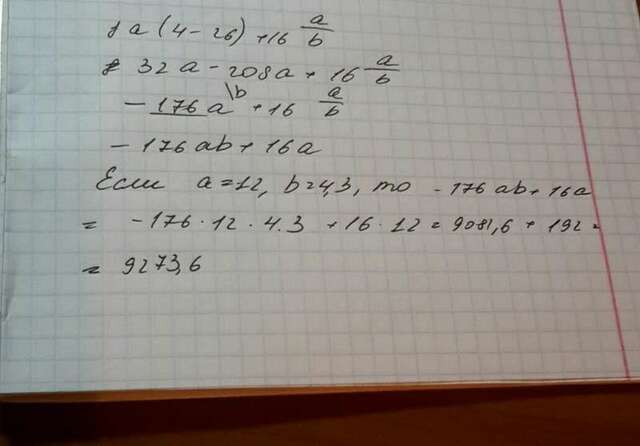 8a(4-26)+16 a/b
= 32a-208a+16 a/b
-176a\b+16 a/b
-176ab+16a
Если a=12, b=4,3, то -176ab+16a
= -176·12·4.3+16·12=9081,6+192=
= 9273,6